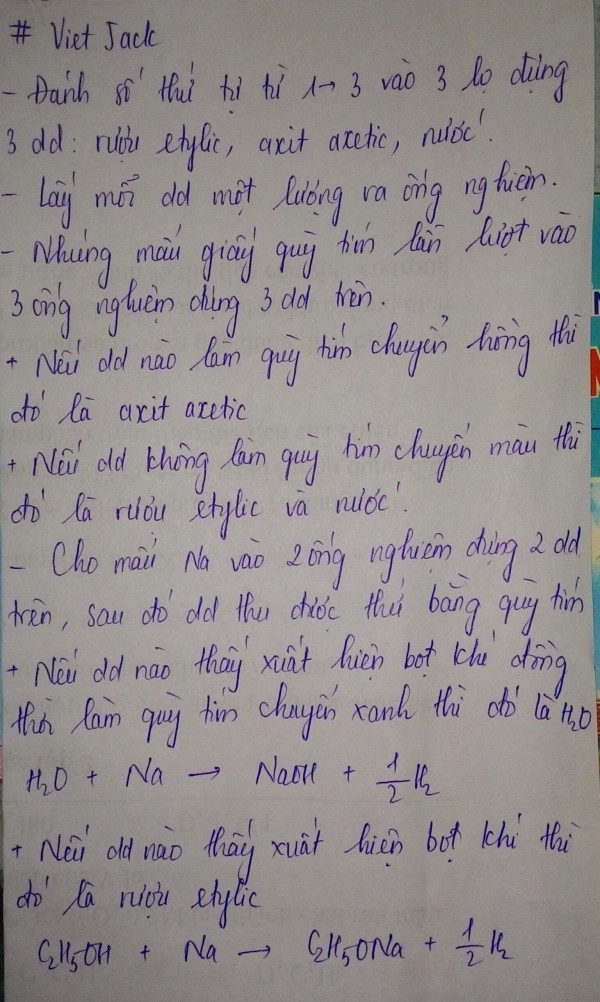 # Viet Jack
- Đánh số thứ tự từ 1→ 3 vào 3 lọ đựng
3 dd: rượu etylic, axit axetic, nước.
- Lấy mỗi dd một lượng ra ống nghiệm.
- Nhúng mẩu giấy quỳ tím lần lượt vào
3 ống nghiệm đựng 3 dd trên.
+ Nếu dd nào làm quỳ tím chuyển hồng thì
đó là axit axetic
+ Nếu dd không làm quỳ tím chuyển màu thì
đó là rượu etylic và nước.
- Cho mẩu Na vào 2 ống nghiệm đựng 2 dd
trên, sau đó dd thu được thử bằng quỳ tím
+ Nếu dd nào thấy xuất hiện bọt khí đồng
thời làm quỳ tím chuyển xanh thì đó là H₂O
H₂O + Na → NaOH + 1/2 H₂
+ Nếu dd nào thấy xuất hiện bọt khí thì
đó là rượu etylic
C₂H₅OH + Na → C₂H₅ONa + 1/2 H₂